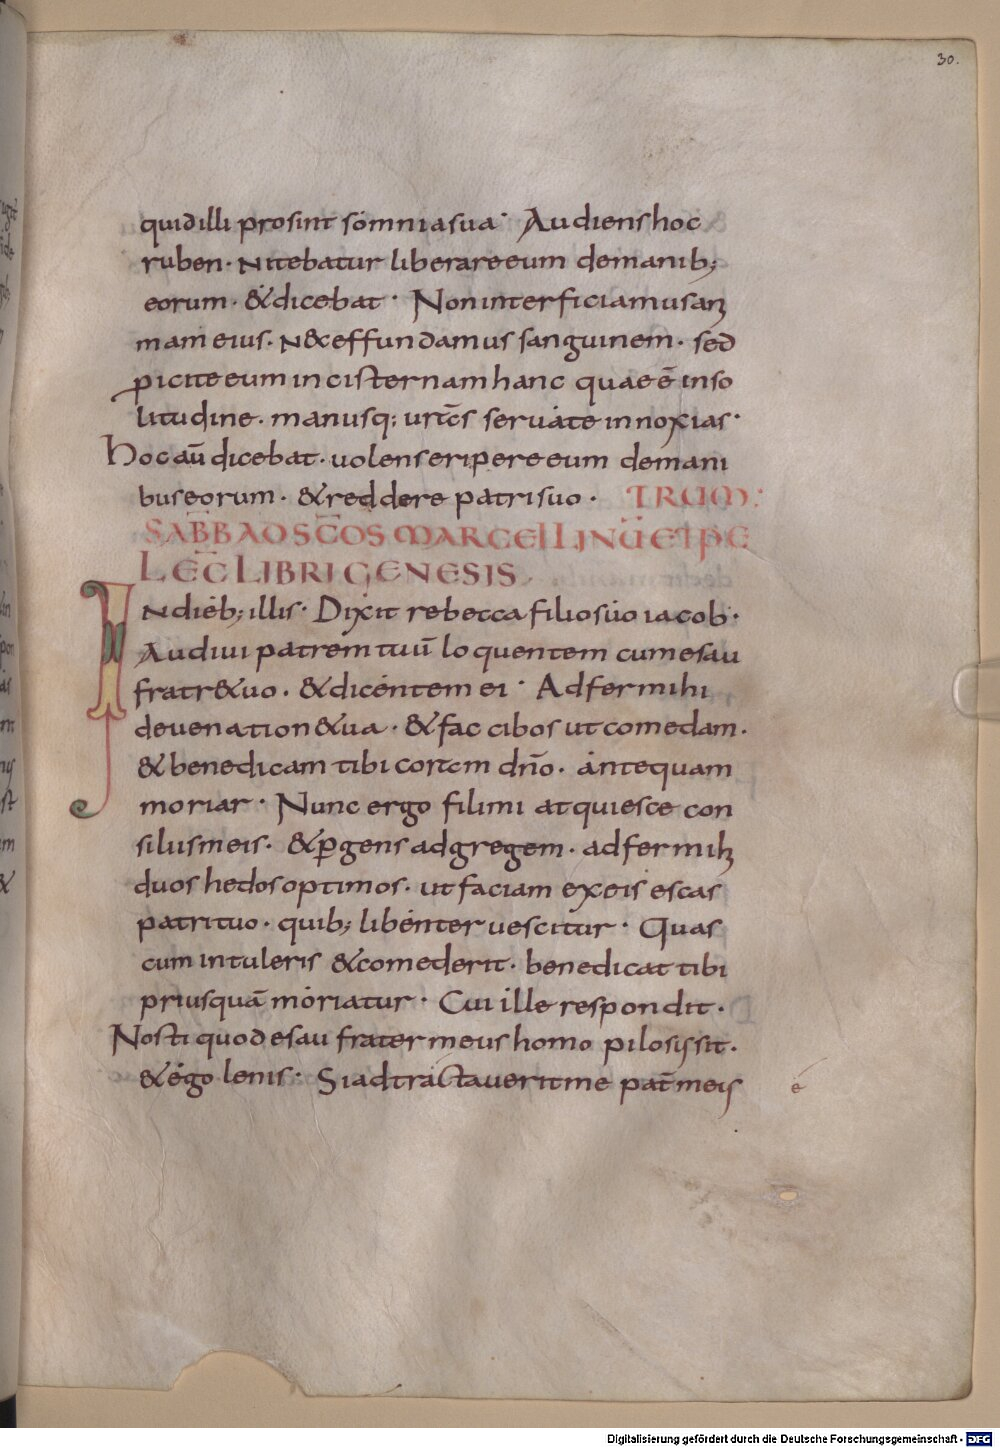 30.
quid illi prosint somnia sua· Audiens hoc
ruben· nitebatur liberare eum de manib;
eorum· & dicebat· Non interficiamus ani
mam eius· n& effundamus sanguinem· sed
picite eum in cisternam hanc quae ē in so
litudine· manusq; urās seruate innoxias·
Hoc aū dicebat· uolens eripere eum de mani
bus eorum· & reddere patri suo· TRUM:
SABB AD SC̄OS MARCELLINŪ ET PE
LEC̄ LIBRI GENESIS
In dieb; illis· Dixit rebecca filio suo iacob·
Audiui patrem tuū loquentem cum esau
fratr& uo· & dicentem ei· Adfer mihi
de uenation& ua· & fac cibos ut comedam·
& benedicam tibi coram dn̄o· antequam
moriar· Nunc ergo fili mi atquiesce con
siliis meis· & p̄gens ad gregem· adfer mihi
duos hedos optimos· ut faciam ex eis escas
patri tuo· quib; libenter uescitur· Quas
cum intuleris & comederit· benedicat tibi
priusquā moriatur· Cui ille respondit·
Nosti quod esau frater meus homo pilosis sit·
& ego lenis· Si adtractauerit me pat̄ meis
e
Digitalisierung gefördert durch die Deutsche Forschungsgemeinschaft - DFG